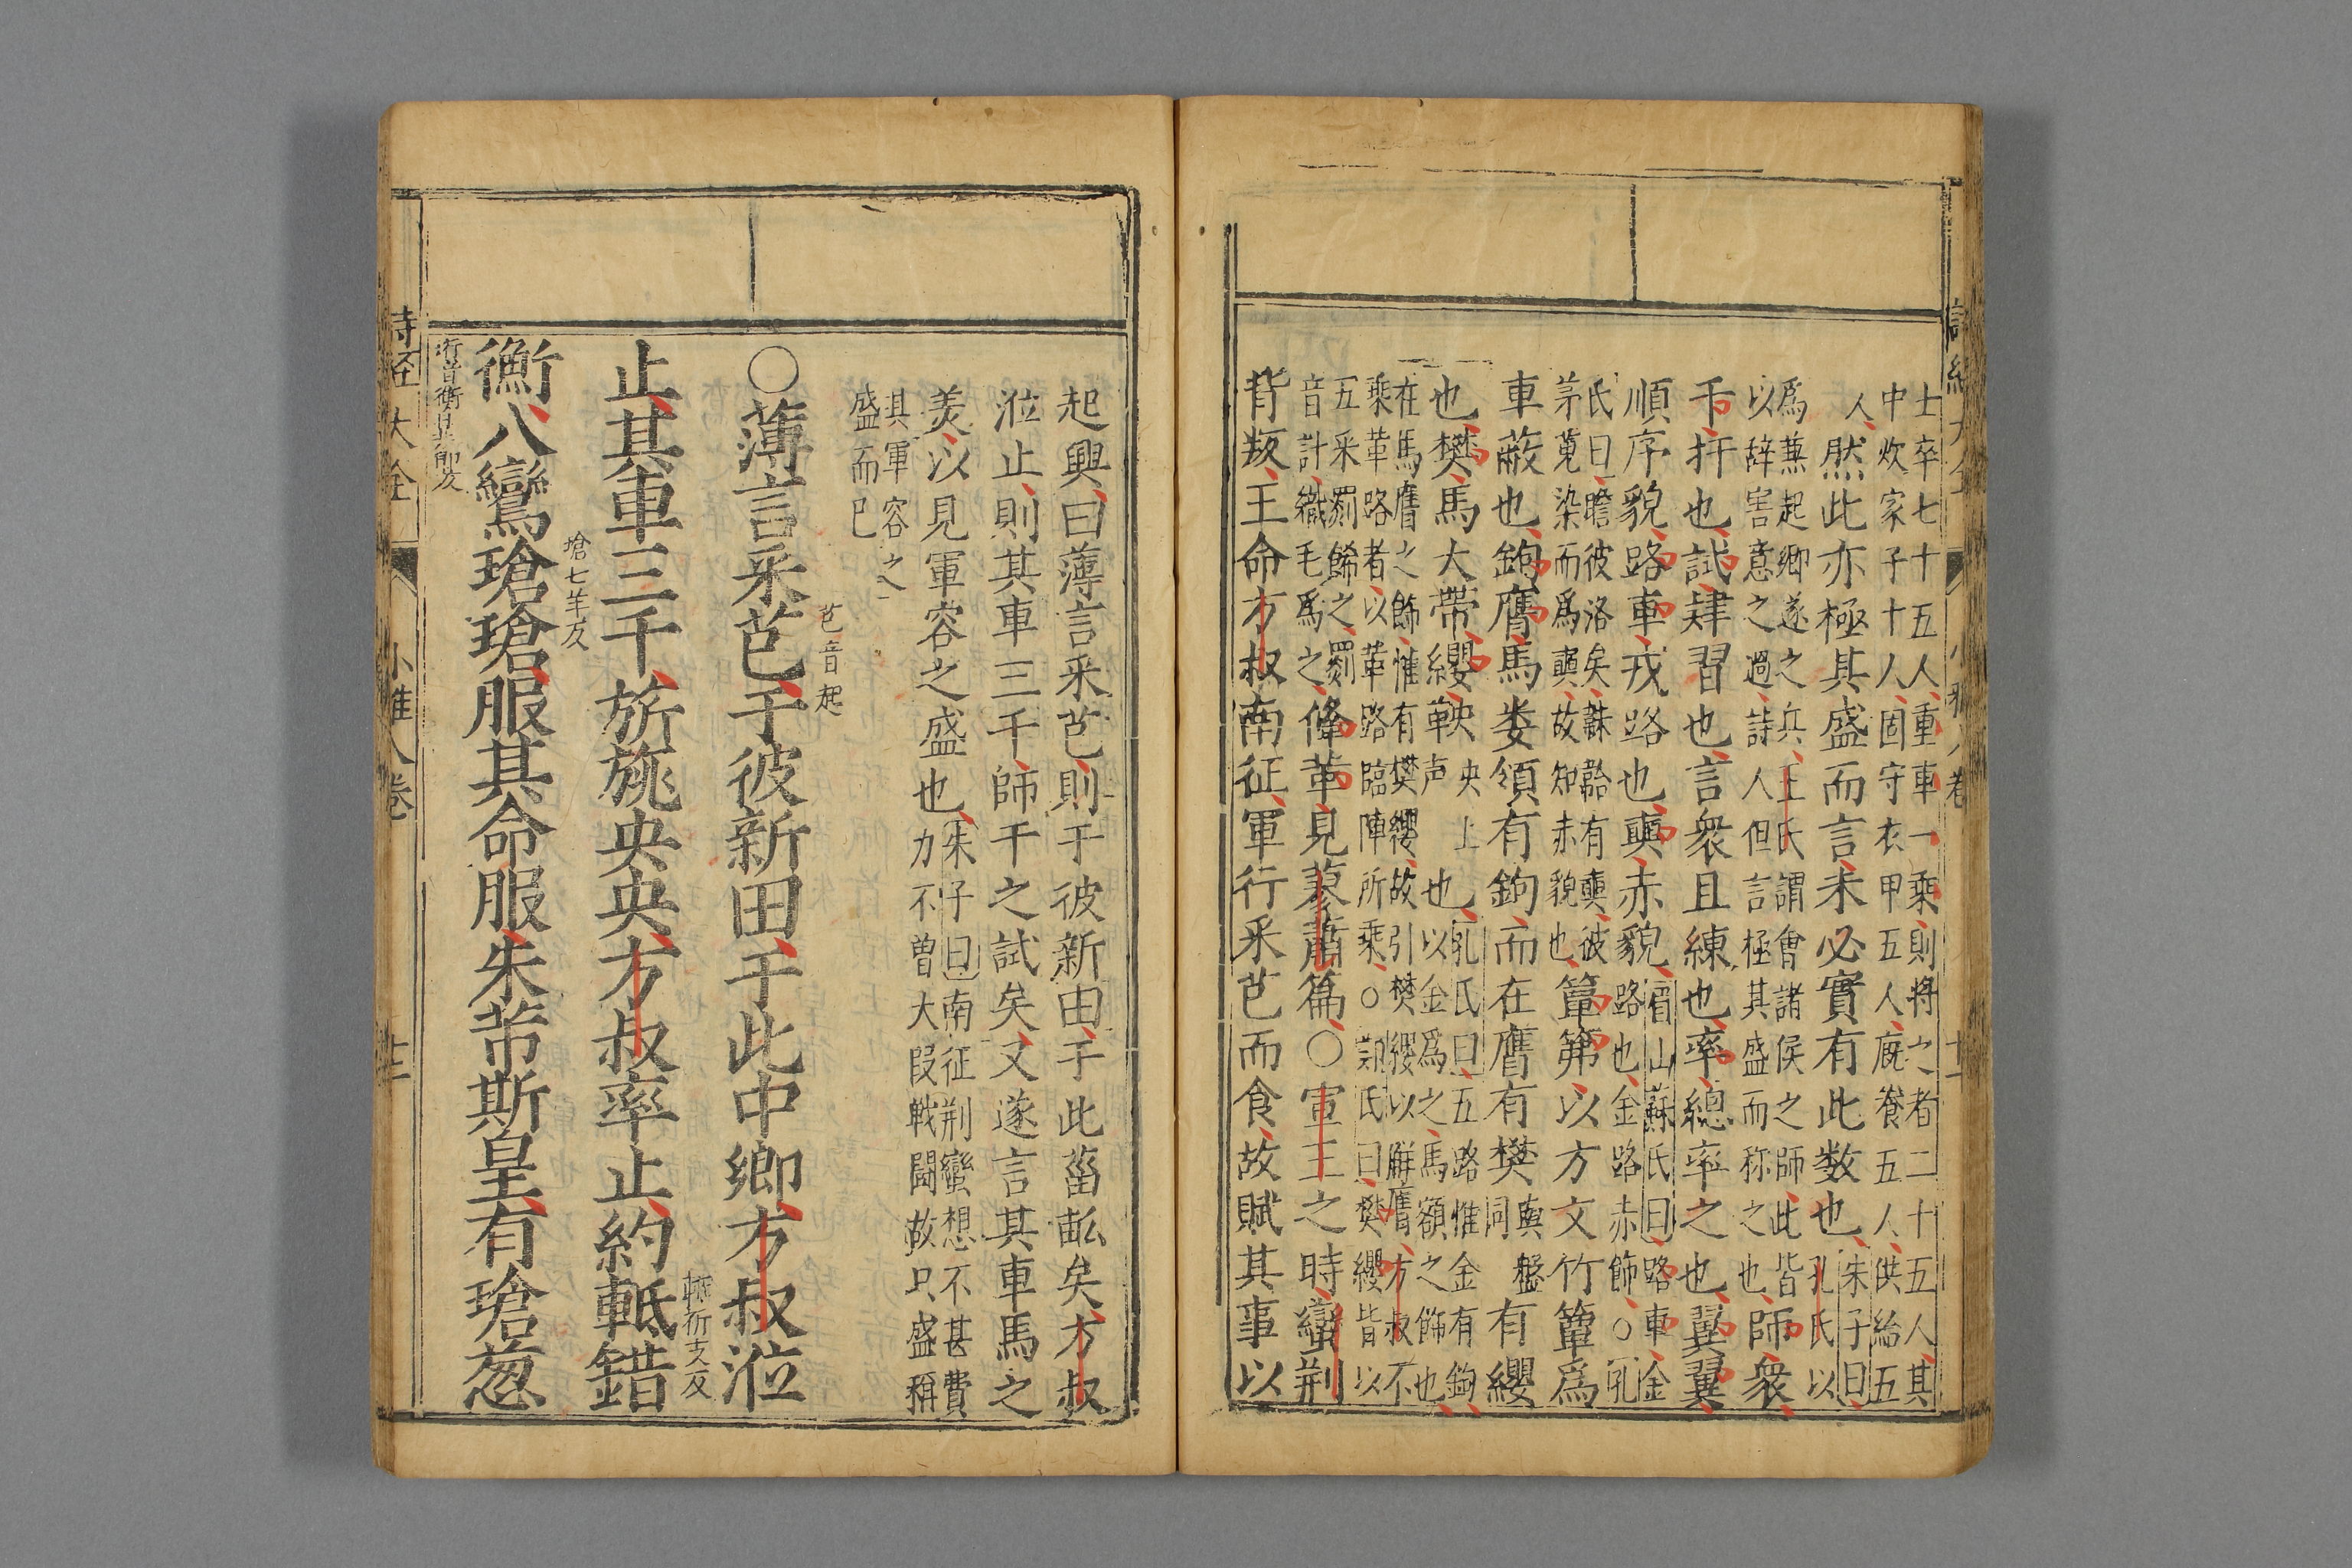 士卒七十五人重車一乘則將之者二十五人其
中炊家子十人固守衣甲五人廐養五人供給五
人然此亦極其盛而言未必實有此数也朱子曰孔氏以
爲兼起鄉遂之兵王氏謂會諸侯之師此皆
以辞害意之過詩人但言極其盛而称之也師衆
干扞也試肄習也言衆且練也率總率之也翼翼
順序貌路車戎路也奭赤貌眉山蘇氏曰路車金路也金路赤飾○孔
氏曰瞻彼洛矣韎韐有奭彼
茅蒐染而爲奭故知赤貌也簟笰以方文竹簟爲
車蔽也鉤膺馬婁領有鉤而在膺有樊與鞶同有纓
也樊馬大帶纓鞅央上声也孔氏曰五路惟金有鉤以金爲之馬額之餙也
在馬膺之飾惟有樊纓故引樊纓以觧膺方叔不
乘革路者以革路臨陣所乘○氏曰樊纓皆以
五采罽餙之罽
音計織毛爲之鞗革見蓼蕭篇○宣王之時蠻荆
背叛王命方叔南征軍行采芑而食故賦其事以
起興曰薄言采芑則于彼新田于此菑畆矣方叔
涖止則其車三千師干之試矣又遂言其車馬之
美以見軍容之盛也朱子曰南征荆蠻想不甚費力不曽大叚戦鬪故只盛稱
其軍容之
盛而已
○薄言采芑芑音起于彼新田于此中鄉方叔涖
止其車三千旂旐央央方叔率止約軧軧祈支反錯
衡八鸞瑲瑲瑲七羊反服其命服朱芾斯皇有瑲葱
珩音衡叶戸郎反
詩経大全 小雅八卷 十二